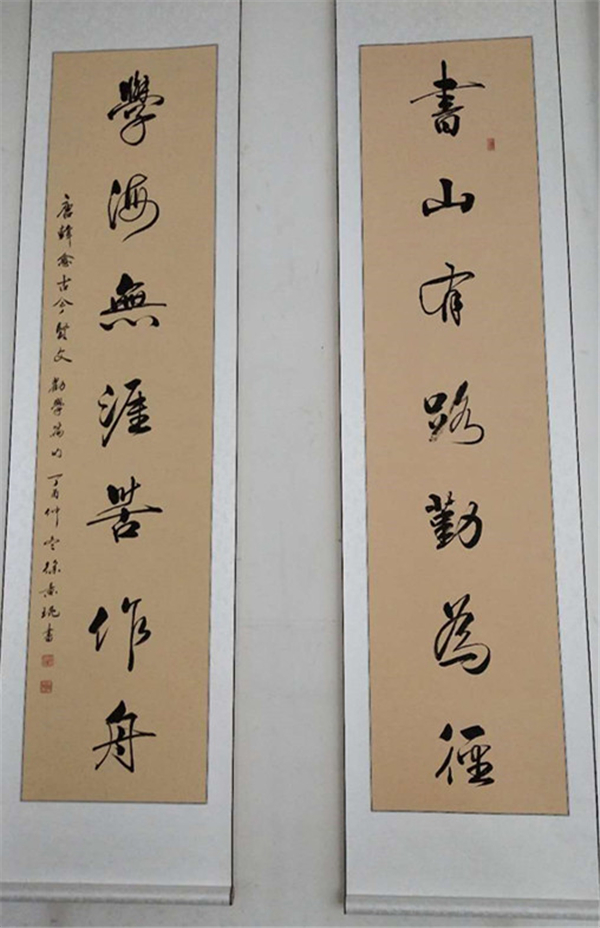 書山有路勤為徑
學海無涯苦作舟
唐韓愈古今賢文 勸學篇句 丁酉仲 徐 書